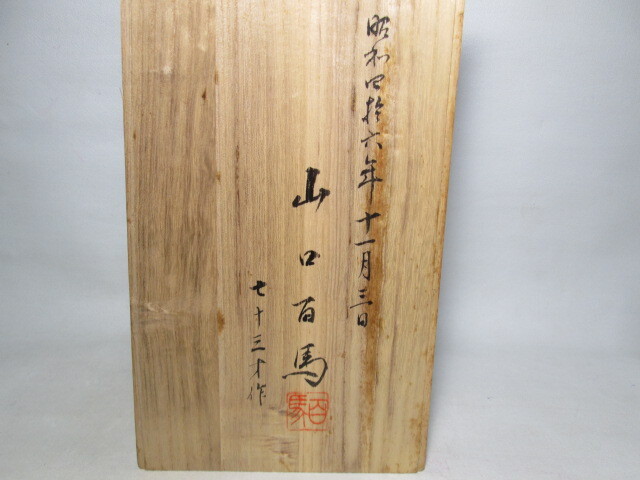 昭和四拾六年十一月三日
山口百馬
七十三才作
百馬